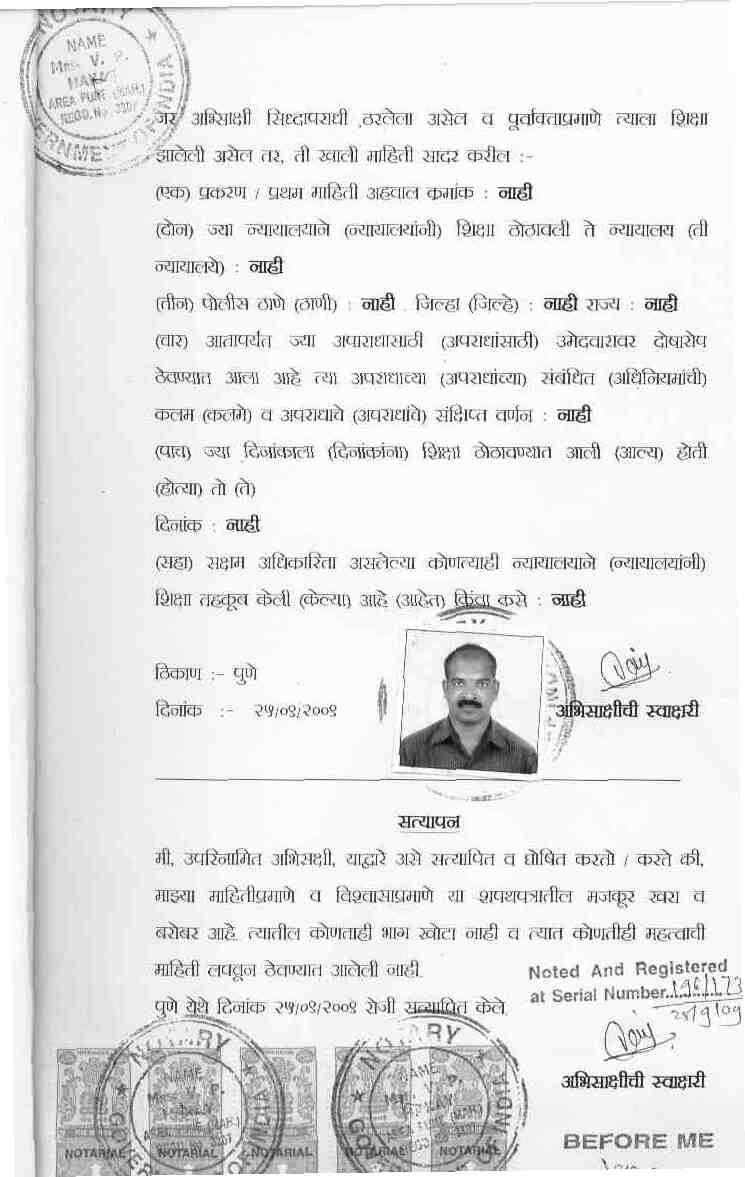 NOTARY
NAME
Mrs. V. P.
AREA PUNE (MAH.)
REGD. No. 3207
GOVERNMENT OF INDIA
जर अभिसाक्षी सिध्दापराधी ठरलेला असेल व पूर्वोक्ताप्रमाणे त्याला शिक्षा
झालेली असेल तर, ती खाली माहिती सादर करील :-
(एक) प्रकरण / प्रथम माहिती अहवाल क्रमांक : नाही
(दोन) ज्या न्यायालयाने (न्यायालयांनी) शिक्षा ठोठावली ते न्यायालय (ती
न्यायालये) : नाही
(तीन) पोलीस ठाणे (ठाणी) : नाही . जिल्हा (जिल्हे) : नाही राज्य : नाही
(चार) आतापर्यंत ज्या अपराधासाठी (अपराधांसाठी) उमेदवारावर दोषारोप
ठेवण्यात आला आहे त्या अपराधाच्या (अपराधांच्या) संबंधित (अधिनियमांची)
कलम (कलमे) व अपराधाचे (अपराधांचे) संक्षिप्त वर्णन : नाही
(पाच) ज्या दिनांकाला (दिनांकांना) शिक्षा ठोठावण्यात आली (आल्या) होती
(होत्या) तो (ते)
दिनांक : नाही
(सहा) सक्षम अधिकारिता असलेल्या कोणत्याही न्यायालयाने (न्यायालयांनी)
शिक्षा तहकूब केली (केल्या) आहे (आहेत) किंवा कसे : नाही
ठिकाण :- पुणे
दिनांक :- २५/०९/२००९
अभिसाक्षीची स्वाक्षरी
सत्यापन
मी, उपरिनामित अभिसक्षी, याद्वारे असे सत्यापित व घोषित करतो / करते की,
माझ्या माहितीप्रमाणे व विश्वासाप्रमाणे या शपथपत्रातील मजकूर खरा व
बरोबर आहे. त्यातील कोणताही भाग खोटा नाही व त्यात कोणतीही महत्वाची
माहिती लपवून ठेवण्यात आलेली नाही.
पुणे येथे दिनांक २५/०९/२००९ रोजी सत्यापित केले.
Noted And Registered
at Serial Number..
25/9/09
अभिसाक्षीची स्वाक्षरी
BEFORE ME
NOTARY
NAME
NOTARIAL NOTARIAL NOTARIAL NOTARIAL NOTARIAL